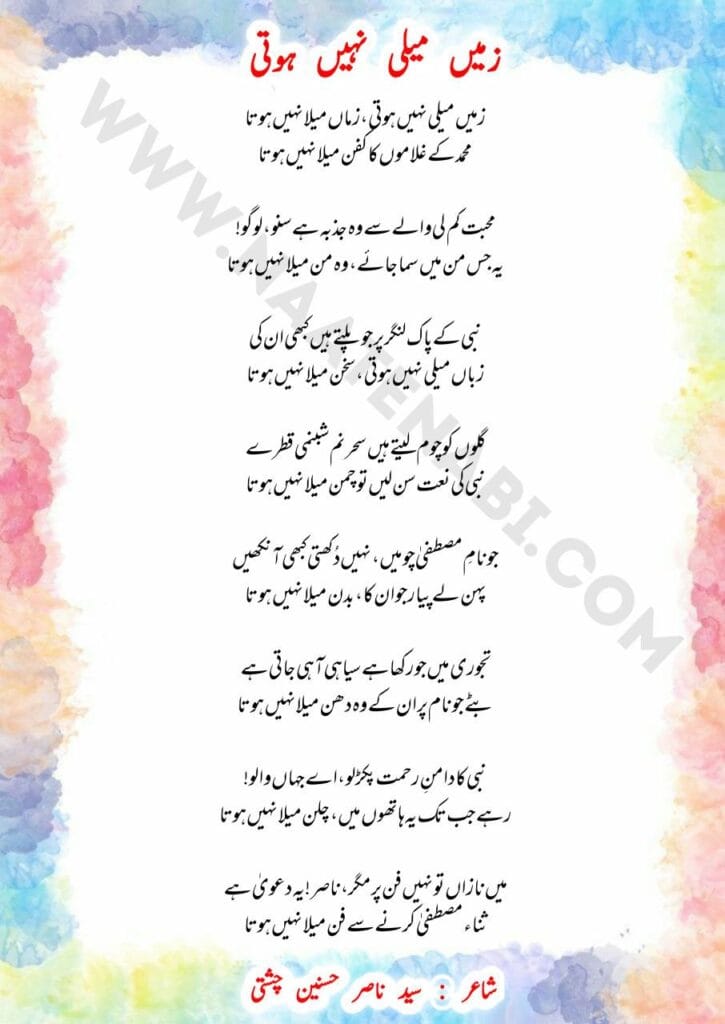 زمیں میلی نہیں ہوتی
زمیں میلی نہیں ہوتی، زماں میلا نہیں ہوتا
محمد کے غلاموں کا کفن میلا نہیں ہوتا
محبت کم لی والے سے وہ جذبہ ہے سنو، لوگو!
یہ جس من میں سما جائے، وہ من میلا نہیں ہوتا
نبی کے پاک لنگر پر جو پلتے ہیں کبھی ان کی
زباں میلی نہیں ہوتی، سخن میلا نہیں ہوتا
گلوں کو چوم لیتے ہیں سحر نم شبنمی قطرے
نبی کی نعت سن لیں تو چمن میلا نہیں ہوتا
جو نامِ مصطفیٰ چومیں، نہیں دُکھتی کبھی آنکھیں
پہن لے پیار جو ان کا، بدن میلا نہیں ہوتا
تجوری میں جو رکھا ہے سیاہی آ ہی جاتی ہے
بٹے جو نام پر ان کے وہ دھن میلا نہیں ہوتا
نبی کا دامنِ رحمت پکڑ لو، اے جہاں والو!
رہے جب تک یہ ہاتھوں میں، چلن میلا نہیں ہوتا
میں نازاں تو نہیں فن پر مگر، ناصر! یہ دعویٰ ہے
ثناء مصطفیٰ کرنے سے فن میلا نہیں ہوتا
شاعر : سید ناصر حسنین چشتی
WWW.NAATENABI.COM